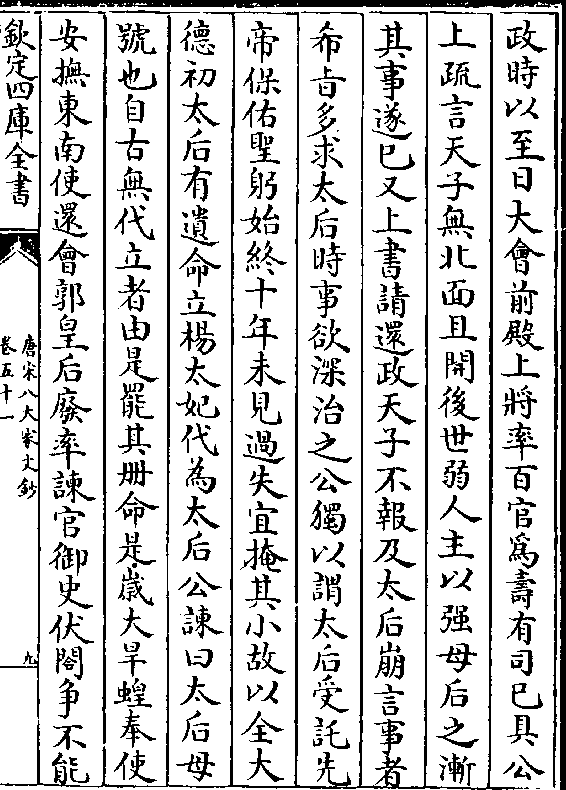 政時以至日大會前殿上將率百官爲壽有司已具公
上疏言天子無北面且開後世弱人主以强母后之漸
其事遂已又上書請還政天子不報及太后崩言事者
希旨多求太后時事欲深治之公獨以謂太后受託先
帝保佑聖躬始終十年未見過失宜掩其小故以全大
德初太后有遺命立楊太妃代為太后公諫曰太后母
號也自古無代立者由是罷其册命是歲大旱蝗奉使
安撫東南使還會郭皇后廢率諫官御史伏閤争不能
欽定四庫全書
唐宋八大家文鈔
卷五十一
九